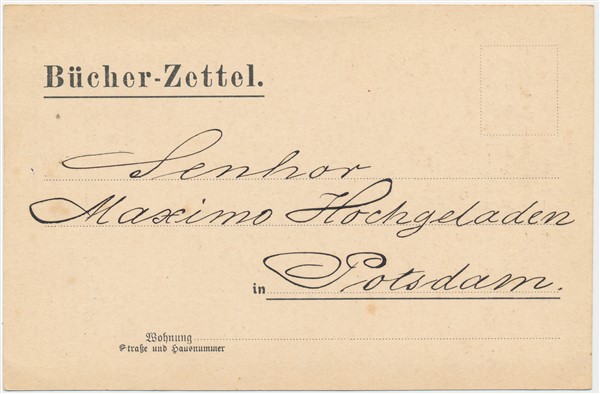 Bücher-Zettel.
Senhor
Maximo Hochgeladen
in Potsdam.
Wohnung
Straße und Hausnummer